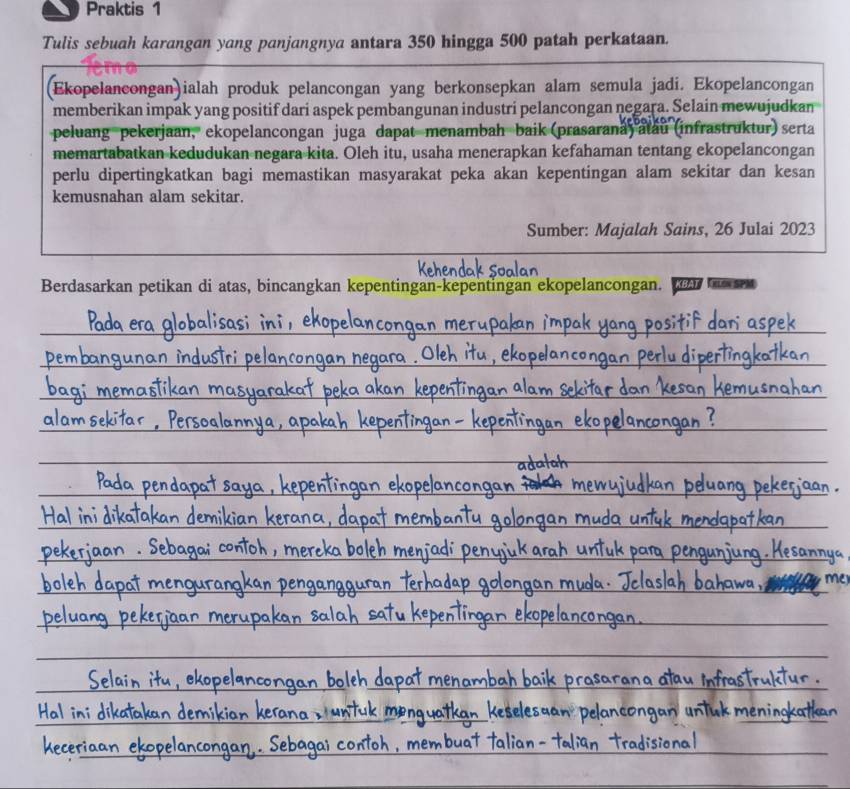 Praktis 1
Tulis sebuah karangan yang panjangnya antara 350 hingga 500 patah perkataan.
Tema
(Ekopelancongan) ialah produk pelancongan yang berkonsepkan alam semula jadi. Ekopelancongan
memberikan impak yang positif dari aspek pembangunan industri pelancongan negara. Selain mewujudkan
kebaikan
peluang pekerjaan, ekopelancongan juga dapat menambah baik (prasarana) atau (infrastruktur) serta
memartabatkan kedudukan negara kita. Oleh itu, usaha menerapkan kefahaman tentang ekopelancongan
perlu dipertingkatkan bagi memastikan masyarakat peka akan kepentingan alam sekitar dan kesan
kemusnahan alam sekitar.
Sumber: Majalah Sains, 26 Julai 2023
Kehendak soalan
Berdasarkan petikan di atas, bincangkan kepentingan-kepentingan ekopelancongan. KBAT KLON SPM
Pada era globalisasi ini, ekopelancongan merupakan impak yang positif dari aspek
pembangunan industri pelancongan negara. Oleh itu, ekopelancongan perlu dipertingkatkan
bagi memastikan masyarakat peka akan kepentingan alam sekitar dan kesan kemusnahan
alam sekitar. Persoalannya, apakah kepentingan-kepentingan ekopelancongan?
adalah
Pada pendapat saya, kepentingan ekopelancongan mewujudkan peluang pekerjaan.
Hal ini dikatakan demikian kerana, dapat membantu golongan muda untuk mendapatkan
pekerjaan. Sebagai contoh, mereka boleh menjadi penujuk arah untuk para pengunjung. Kesannya,
boleh dapat mengurangkan pengangguran terhadap golongan muda. Jelaslah bahawa,
peluang pekerjaan merupakan salah satu kepentingan ekopelancongan.
Selain itu, ekopelancongan boleh dapat menambah baik prasarana atau infrastruktur.
Hal ini dikatakan demikian kerana, untuk menguatkan keselesaan pelancongan untuk meningkatkan
keceriaan ekopelancongan. Sebagai contoh, membuat talian-talian tradisional